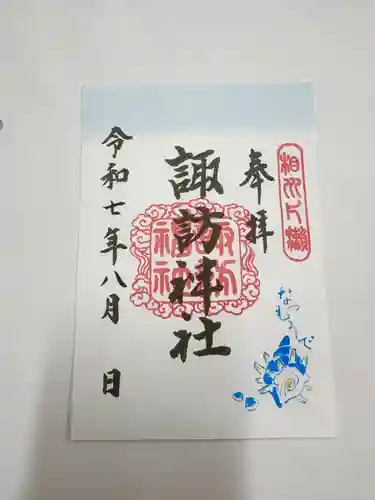 相州片瀬
奉拝
諏訪神社
令和七年八月 日
なつ
もうで